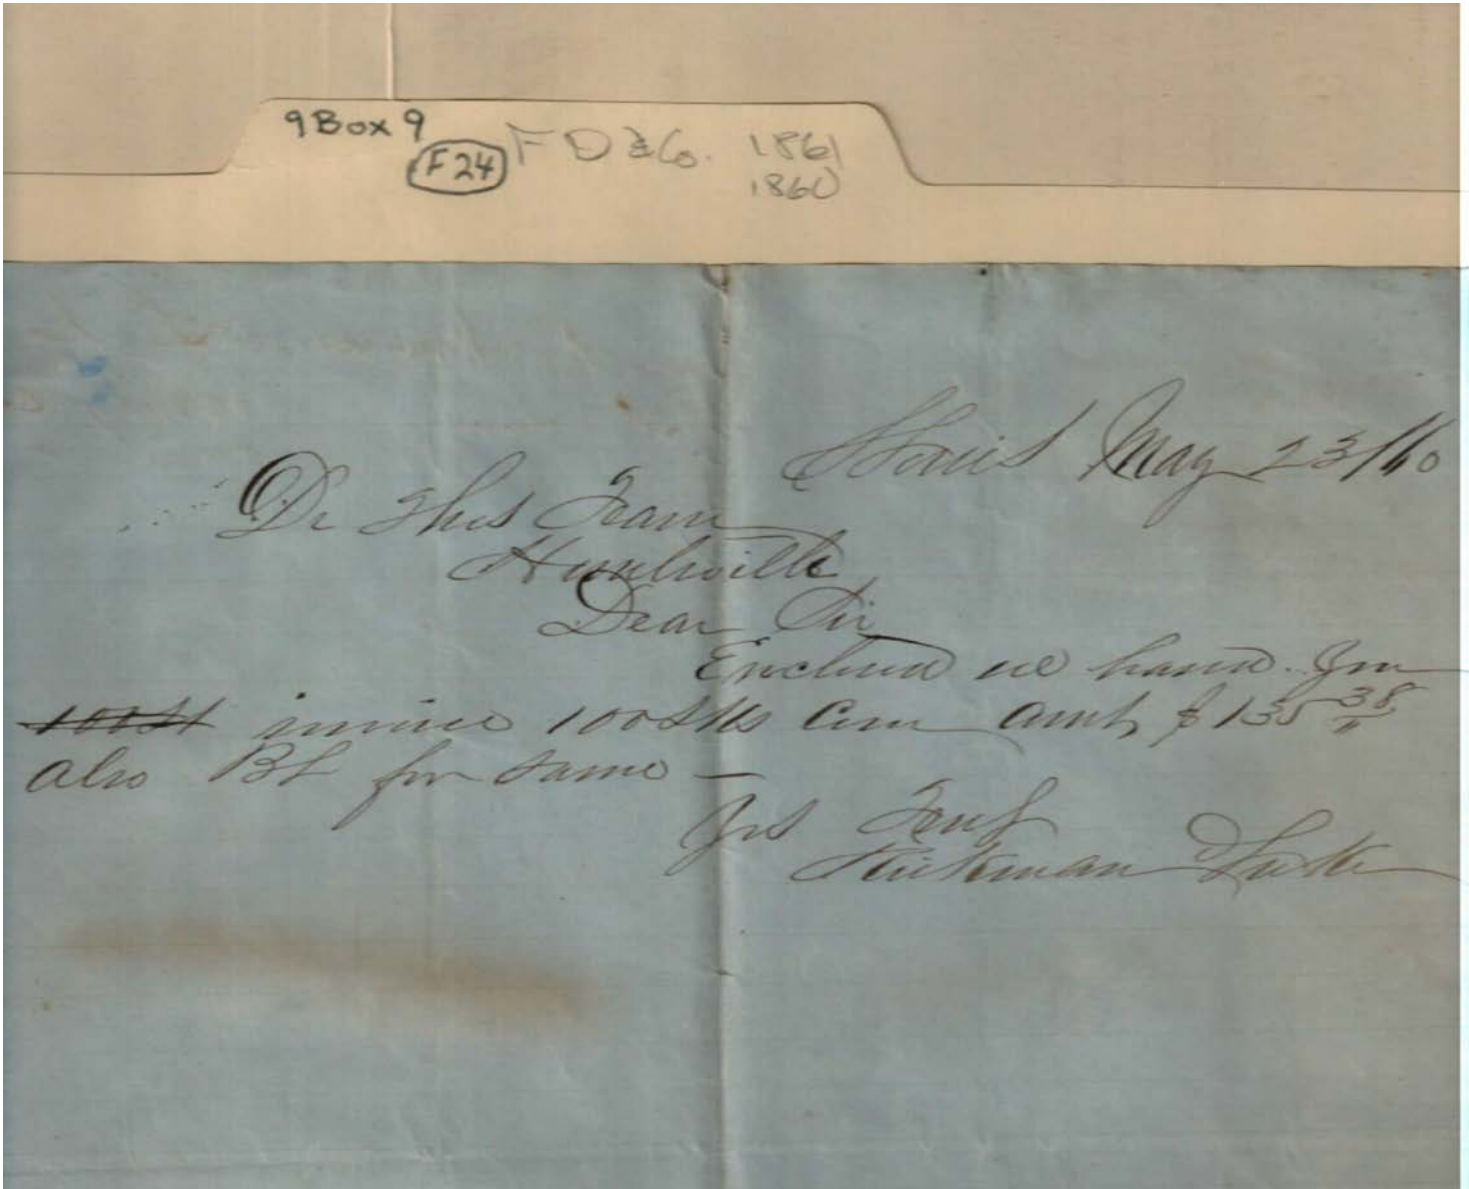 9 Box 9
F24 F D & Co. 1861
1860
St Louis May 23/60
Dr Thos Fearn
Huntsville
Dear Sir
Enclosed we hand you
100 St invoice 100 Sks Corn amt $ 135 38/"
also BL for same —
Yrs Truly
Hickman